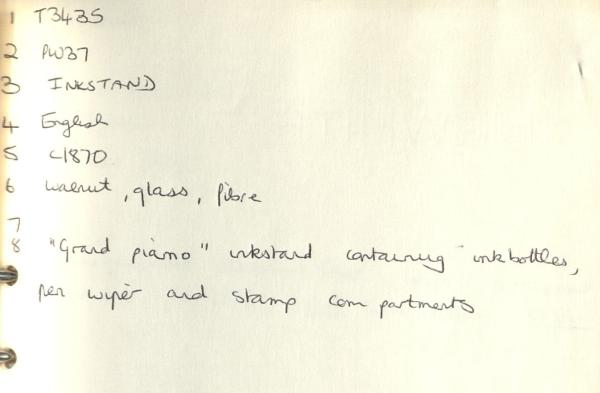 1 T3435
2 PW37
3 INKSTAND
4 English
5 C1870
6 walnut, glass, fibre
7
8 "Grand piano" inkstand containing ink bottles,
pen wiper and stamp compartments